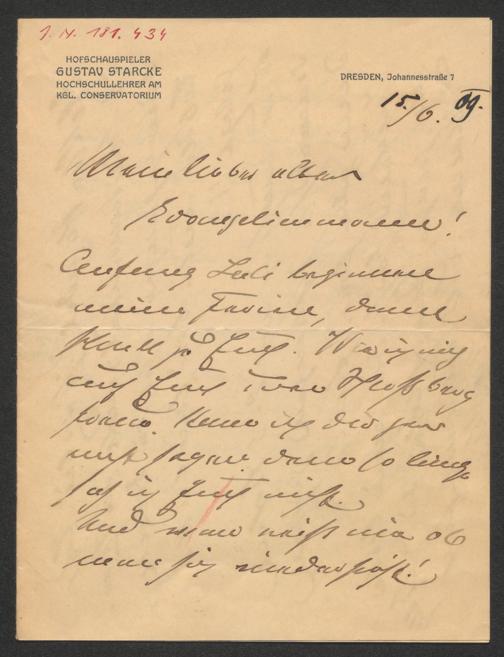 I. N. 181.434
HOFSCHAUSPIELER
GUSTAV STARCKE
HOCHSCHULLEHRER AM
KGL. CONSERVATORIUM
DRESDEN, Johannesstraße 7
15./6. 09.
Mein lieber alter
Evangelimann!
Anfang Juli beginnen
meine Ferien, dann
komm ich zu Euch. Wie ich mich
auf Euch und
freue. Kann ich dir gar
nicht sagen, denn so lange
sah ich Euch nicht.
Und man weiß nie ob
man sich wiedersieht!